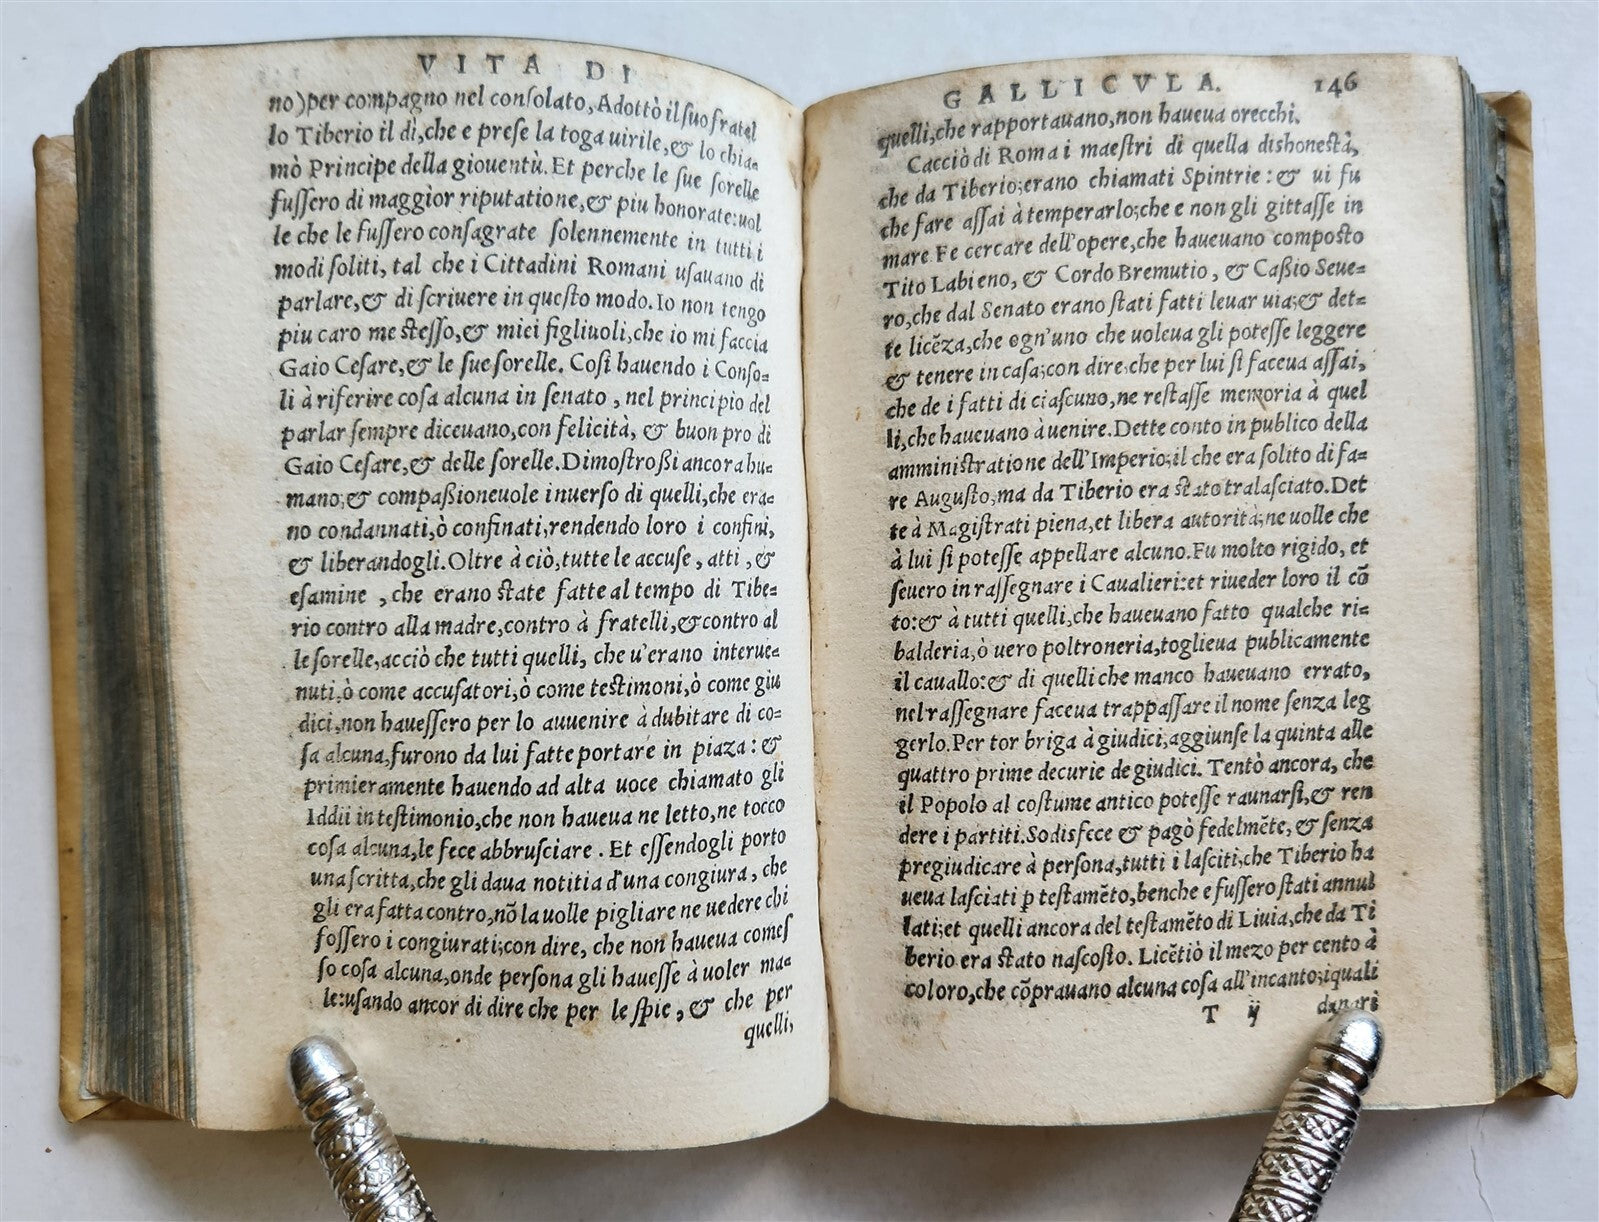 VITA DI
no)per compagno nel conſolato, Adottò il ſuo fratel
lo Tiberio il dì,che e preſe la toga uirile,& lo chia=
mò Principe della giouentù. Et perche le ſue ſorelle
fuſſero di maggior riputatione,& piu honorate:uol
le che le fuſſero conſagrate ſolennemente in tutti i
modi ſoliti, tal che i Cittadini Romani uſauano di
parlare,& di ſcriuere in queſto modo. Io non tengo
piu caro me ſteſſo,& miei figliuoli,che io mi faccia
Gaio Ceſare,& le ſue ſorelle. Coſi hauendo i Conſo=
li à riferire coſa alcuna in ſenato , nel principio del
parlar ſempre diceuano,con felicità, & buon pro di
Gaio Ceſare,& delle ſorelle. Dimoſtroßi ancora hu=
mano,& compaßioneuole inuerſo di quelli,che era=
no condannati,ò confinati,rendendo loro i confini,
& liberandogli.Oltre à ciò,tutte le accuſe , atti , &
eſamine , che erano ſtate fatte al tempo di Tibe=
rio contro alla madre,contro à fratelli,& contro al
le ſorelle,acciò che tutti quelli, che u'erano interue=
nuti,ò come accuſatori,ò come teſtimoni,ò come giu
dici,non haueſſero per lo auuenire à dubitare di co=
ſa alcuna,furono da lui fatte portare in piaza : &
primieramente hauendo ad alta uoce chiamato gli
Iddii in teſtimonio,che non haueua ne letto,ne tocco
coſa alcuna,le fece abbruſciare . Et eſſendogli porto
una ſcritta,che gli daua notitia d'una congiura, che
gli era fatta contro,nõ la uolle pigliare ne uedere chi
foſſero i congiurati;con dire, che non haueua comeſ
ſo coſa alcuna,onde perſona gli haueſſe à uoler ma=
le:uſando ancor di dire che per le ſpie , & che per
quelli,
GALLICVLA. 146
quelli,che rapportauano,non haueua orecchi.
Cacciò di Roma i maeſtri di quella dishoneſtà,
che da Tiberio;erano chiamati Spintrie : & ui fu
che fare aſſai à temperarlo;che e non gli gittaſſe in
mare Fe cercare dell'opere,che haueuano compoſto
Tito Labieno, & Cordo Bremutio , & Caßio Seue=
ro,che dal Senato erano ſtati fatti leuar uia;& det=
te licẽza,che ogn'uno che uoleua gli poteſſe leggere
& tenere in caſa;con dire,che per lui ſi faceua aſſai,
che de i fatti di ciaſcuno,ne reſtaſſe memoria à quel
li,che haueuano à uenire.Dette conto in publico della
amminiſtratione dell'Imperio;il che era ſolito di fa=
re Auguſto,ma da Tiberio era ſtato tralaſciato.Det
te à Magiſtrati piena,et libera autorità;ne uolle che
à lui ſi poteſſe appellare alcuno.Fu molto rigido, et
ſeuero in raſſegnare i Caualieri:et riueder loro il cõ
to:& à tutti quelli,che haueuano fatto qualche ri=
balderia,ò uero poltroneria,toglieua publicamente
il cauallo:& di quelli che manco haueuano errato,
nel raſſegnare faceua trappaſſare il nome ſenza leg
gerlo.Per tor briga à giudici,aggiunſe la quinta alle
quattro prime decurie de giudici. Tentò ancora, che
il Popolo al coſtume antico poteſſe raunarſi,& ren
dere i partiti.Sodisfece & pagò fedelmẽte,& ſenza
pregiudicare à perſona,tutti i laſciti,che Tiberio ha
ueua laſciati ꝑ teſtamẽto,benche e fuſſero ſtati annul
lati;et quelli ancora del teſtamẽto di Liuia,che da Ti
berio era ſtato naſcoſto. Licẽtiò il mezo per cento à
coloro,che cõprauano alcuna coſa all'incanto;iquali
T ij danari